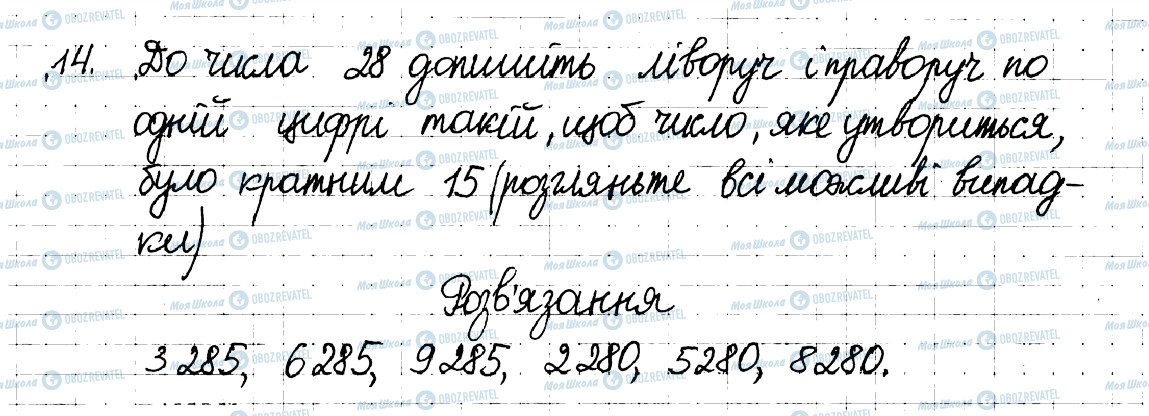 14. До числа 28 допишіть ліворуч і праворуч по
одній цифрі такій, щоб число, яке утвориться,
було кратним 15 (розгляньте всі можливі випад-
ки)
Розв'язання
3285, 6285, 9285, 2280, 5280, 8280.